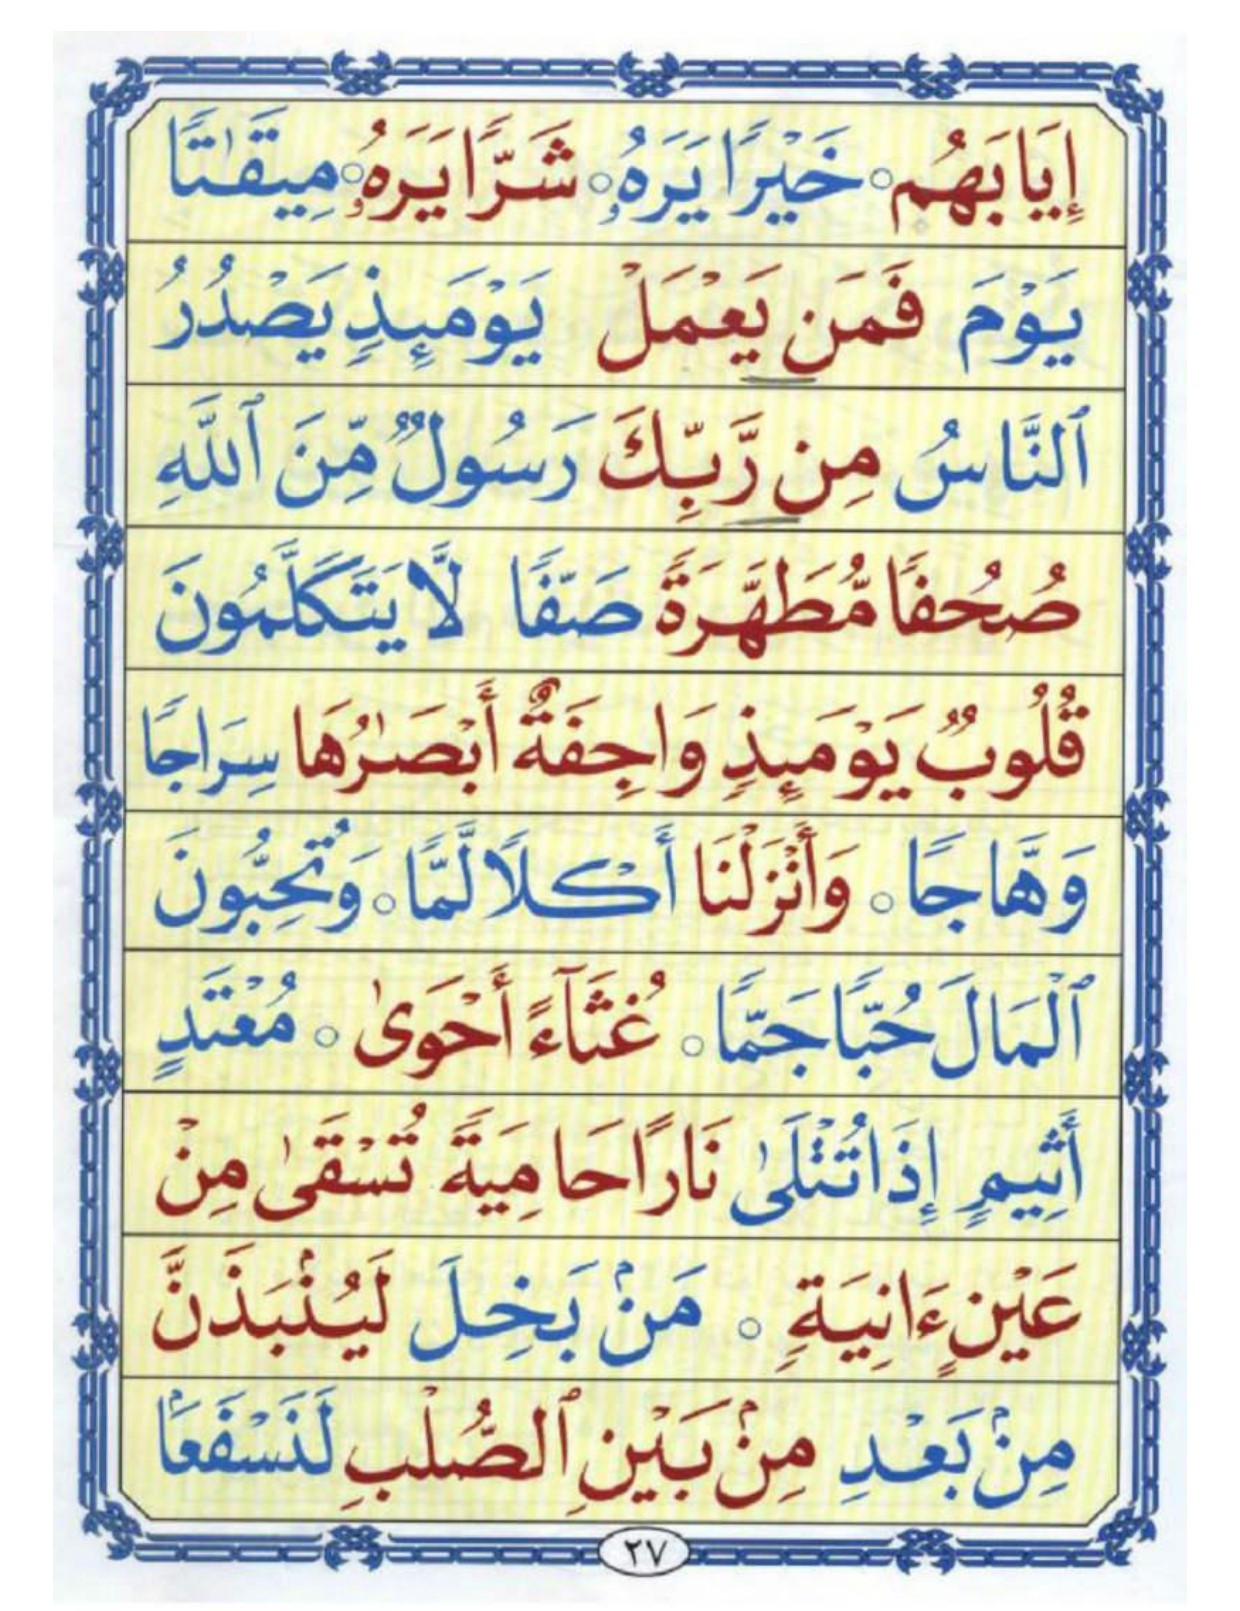 إِيَابَهُم ۝ خَيْرًا يَرَهُۥ ۝ شَرًّا يَرَهُۥ ۝ مِيقَٰتًا
يَوْمَ فَمَن يَعْمَلْ يَوْمَئِذٍ يَصْدُرُ
ٱلنَّاسُ مِن رَّبِّكَ رَسُولٌ مِّنَ ٱللَّهِ
صُحُفًا مُّطَهَّرَةً صَفًّا لَّا يَتَكَلَّمُونَ
قُلُوبٌ يَوْمَئِذٍ وَاجِفَةٌ أَبْصَٰرُهَا سِرَاجًا
وَهَّاجًا ۝ وَأَنْزَلْنَا أَكْلًا لَّمًّا ۝ وَتُحِبُّونَ
ٱلْمَالَ حُبًّا جَمًّا ۝ غُثَآءً أَحْوَىٰ ۝ مُعْتَدٍ
أَثِيمٍ إِذَا تُتْلَىٰ نَارًا حَامِيَةً تُسْقَىٰ مِنْ
عَيْنٍ ءَانِيَةٍ ۝ مَنۢ بَخِلَ لَيُنۢبَذَنَّ
مِنۢ بَعْدِ مِنۢ بَيْنِ ٱلصُّلْبِ لَنَسْفَعَۢا
٢٧